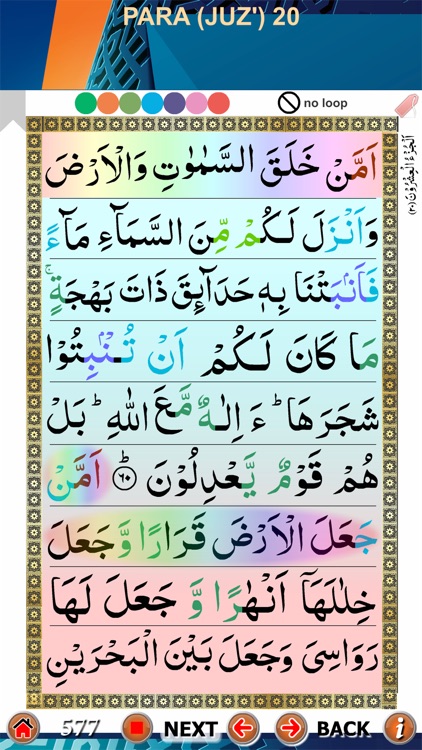 PARA (JUZ') 20
no loop
اَلْجُزْءُ الْعِشْرُوْنَ (٢٠)
اَمَّنْ خَلَقَ السَّمٰوٰتِ وَالْاَرْضَ
وَاَنْزَلَ لَكُمْ مِّنَ السَّمَآءِ مَآءً
فَاَنْۢبَتْنَا بِهٖ حَدَآئِقَ ذَاتَ بَهْجَةٍ ۚ
مَا كَانَ لَكُمْ اَنْ تُنْۢبِتُوْا
شَجَرَهَا ؕ ءَ اِلٰهٌ مَّعَ اللهِ ؕ بَلْ
هُمْ قَوْمٌ يَّعْدِلُوْنَ ؕ ﴿٦٠﴾ اَمَّنْ
جَعَلَ الْاَرْضَ قَرَارًا وَّ جَعَلَ
خِلٰلَهَاۤ اَنْهٰرًا وَّ جَعَلَ لَهَا
رَوَاسِىَ وَجَعَلَ بَيْنَ الْبَحْرَيْنِ
577 NEXT BACK i